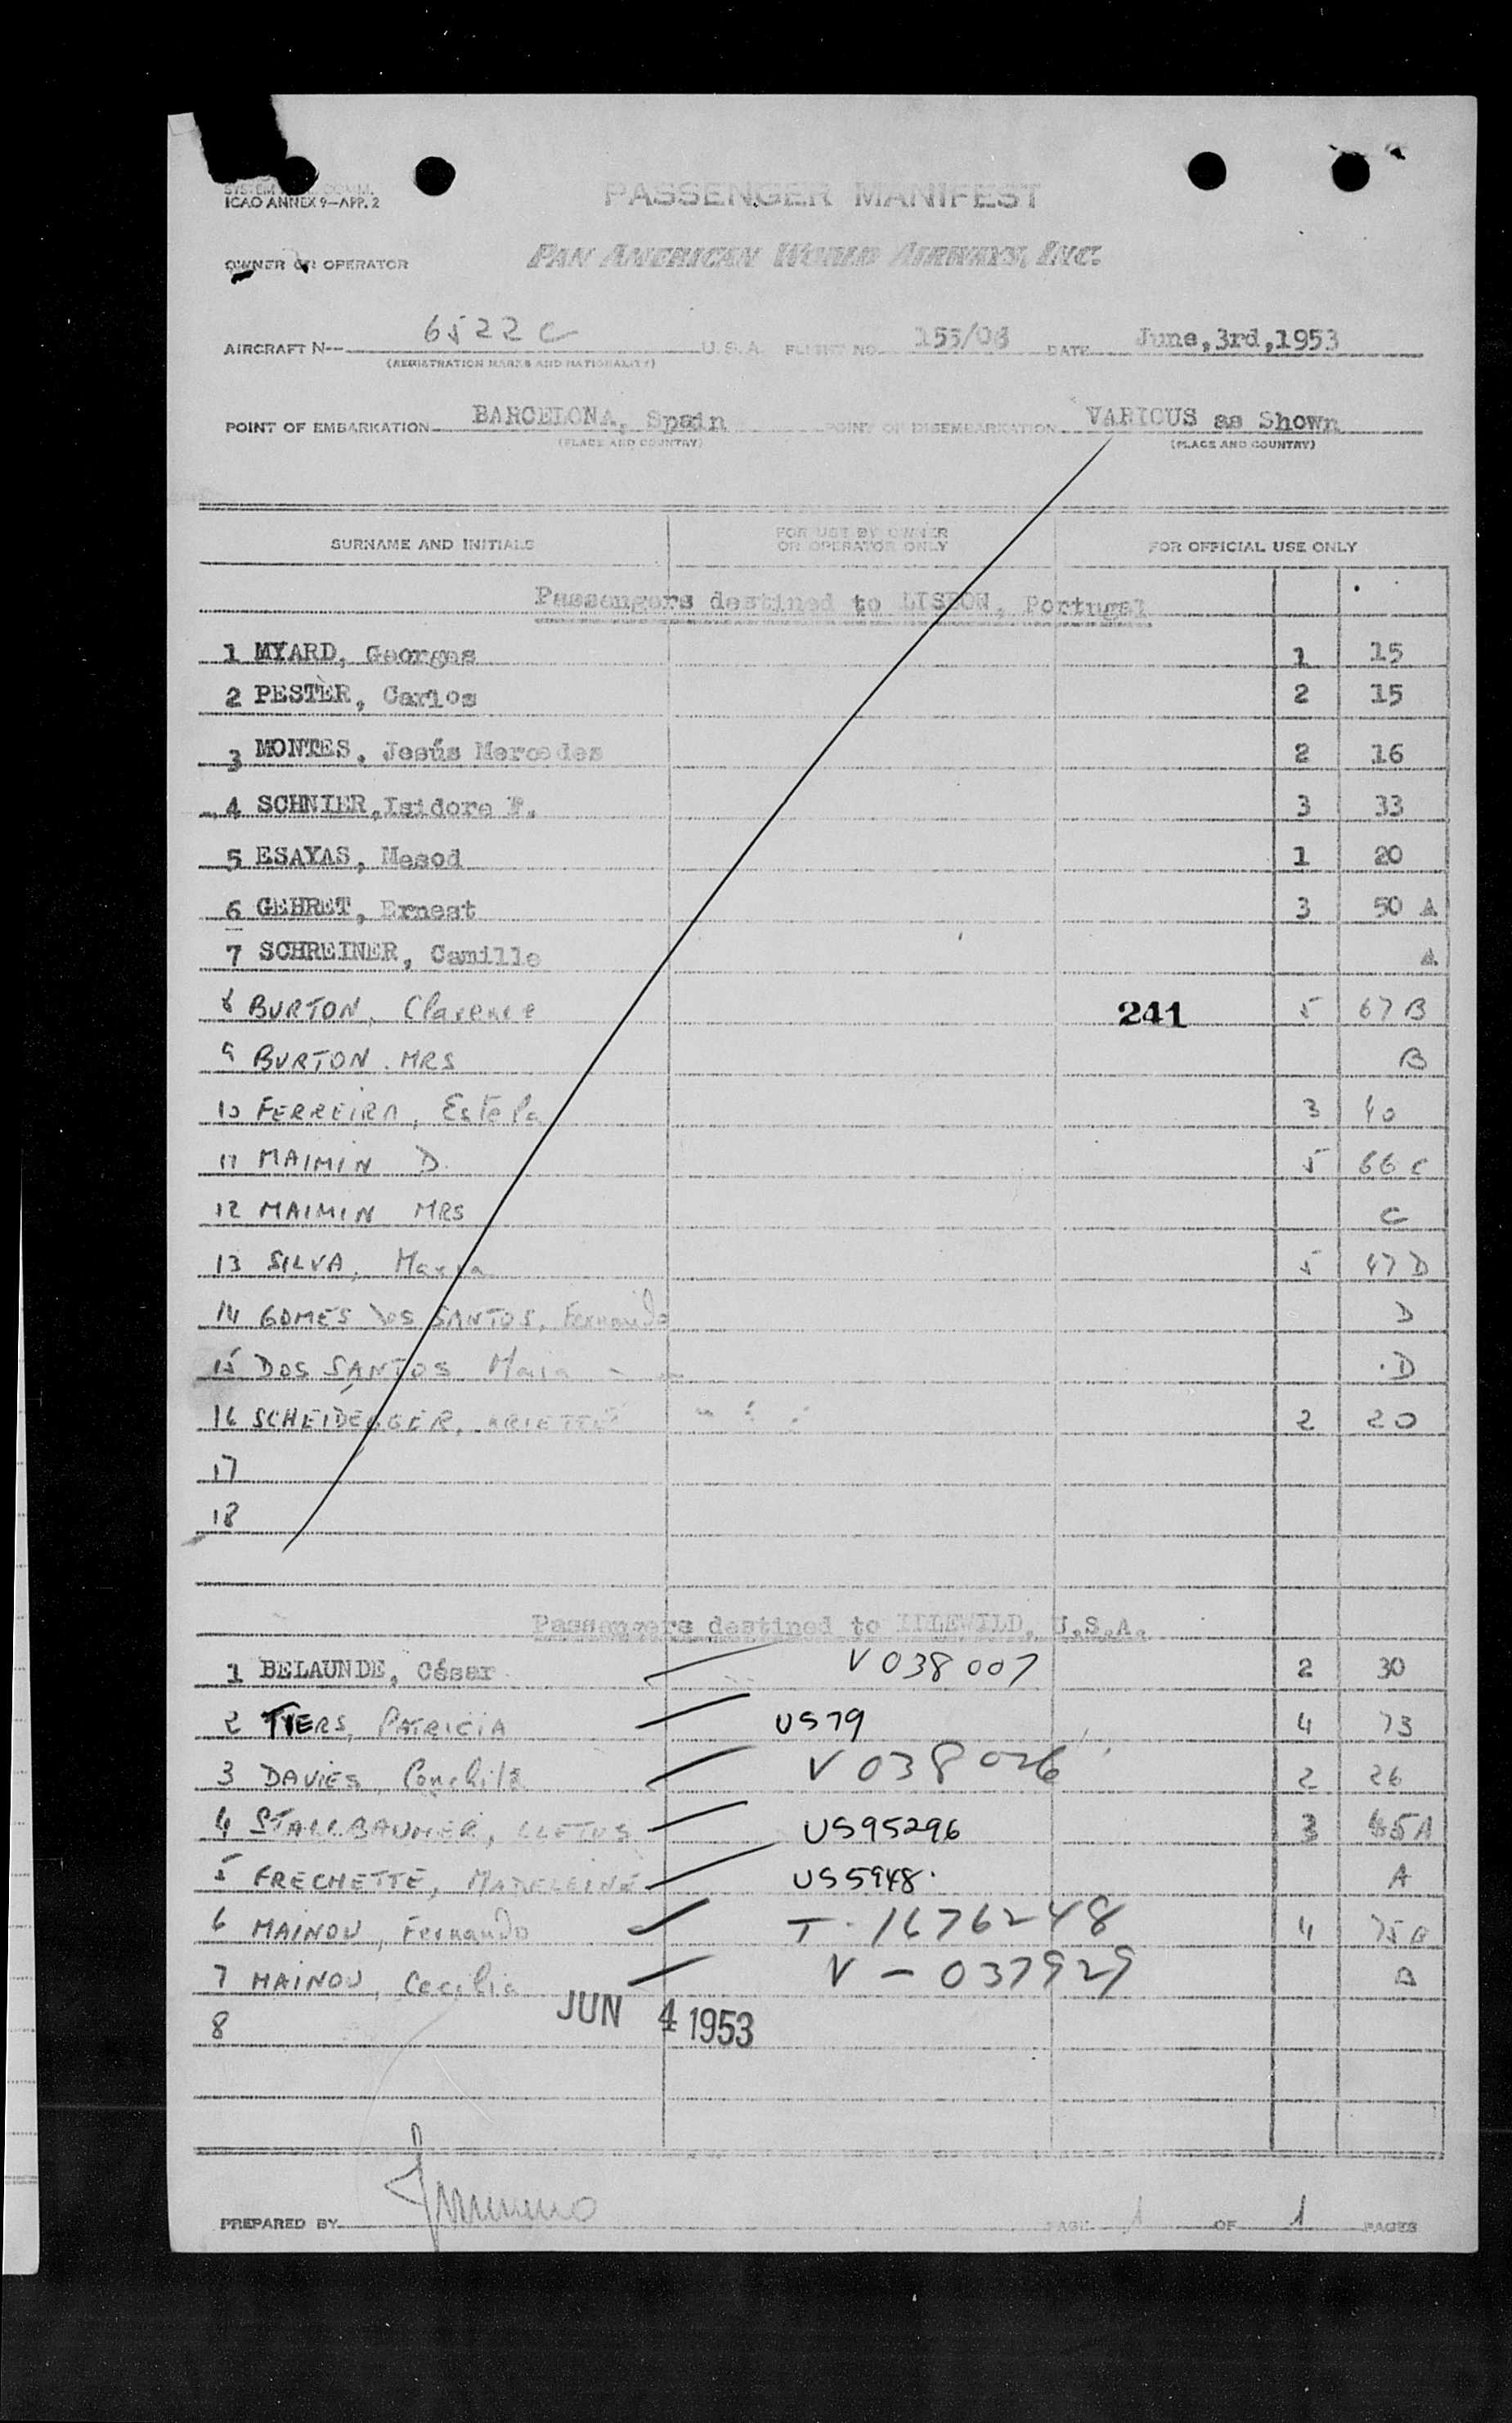 ICAO ANNEX 9—APP. 2
PASSENGER MANIFEST
OWNER OR OPERATOR PAN AMERICAN WORLD AIRWAYS, INC.
AIRCRAFT N— 6522C U.S.A. FLIGHT NO. 155/03 DATE June,3rd,1953
(REGISTRATION MARKS AND NATIONALITY)
POINT OF EMBARKATION BARCELONA, Spain POINT OF DISEMBARKATION VARIOUS as Shown
(PLACE AND COUNTRY) (PLACE AND COUNTRY)
SURNAME AND INITIALS FOR USE BY OWNER OR OPERATOR ONLY FOR OFFICIAL USE ONLY
Passengers destined to LISBON, Portugal
1 MYARD, Georges 1 15
2 PESTER, Carlos 2 15
3 MONTES, Jesús Mercedes 2 16
4 SCHNIER, Isidore F. 3 33
5 ESAYAS, Mesod 1 20
6 GEHRET, Ernest 3 50 A
7 SCHREINER, Camille A
8 BURTON, Clarence 241 5 67 B
9 BURTON. MRS B
10 FERREIRA, Estela 3 40
11 MAIMIN D. 5 66 C
12 MAIMIN MRS C
13 SILVA, Maria 5 47 D
14 GOMES DOS SANTOS, Fernando D
15 DOS SANTOS Maria D
16 SCHEIDEGGER, ARIETTE 2 20
17
18
Passengers destined to IDLEWILD, U.S.A.
1 BELAUNDE, César V 038007 2 30
2 TYERS, PATRICIA US79 4 73
3 DAVIES, Conchita V 038026 2 26
4 STALLBAUMER, CLETUS US95296 3 65 A
5 FRECHETTE, MADELEINE US5948. A
6 MAINOU, Fernando T. 1676248 4 75 B
7 MAINOU, Cecilia V - 037929 B
JUN 4 1953
8
PREPARED BY PAGE 1 OF 1 PAGES